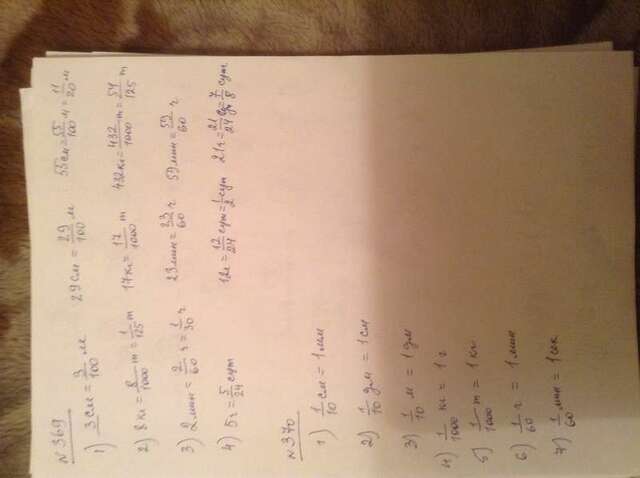 №369
1) 3см = 3/100 м 29см = 29/100 м 55см = 55/100 м = 11/20 м
2) 8кг = 8/1000 т = 1/125 т 17кг = 17/1000 т 432кг = 432/1000 т = 54/125 т
3) 2мин = 2/60 ч = 1/30 ч 23мин = 23/60 ч 59мин = 59/60 ч
4) 5ч = 5/24 сут 12ч = 12/24 сут = 1/2 сут 21ч = 21/24 = 7/8 сут
№370
1) 1/10 см = 1мм
2) 1/10 дм = 1см
3) 1/10 м = 1дм
4) 1/1000 кг = 1г
5) 1/1000 т = 1кг
6) 1/60 ч = 1мин
7) 1/60 мин = 1сек